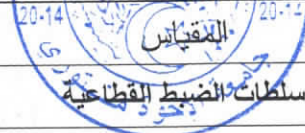 20-14 20-14
المقياس
سلطات الضبط القطاعية